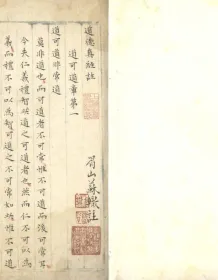 道德真經註
眉山蘇轍註
道可道章第一
道可道非常道
莫非道也而可道者不可常惟不可道而後可常耳
今夫仁義禮智可道之不可常者也然而仁不可以為
義而禮不可以為智可道之不可常如此惟不可道